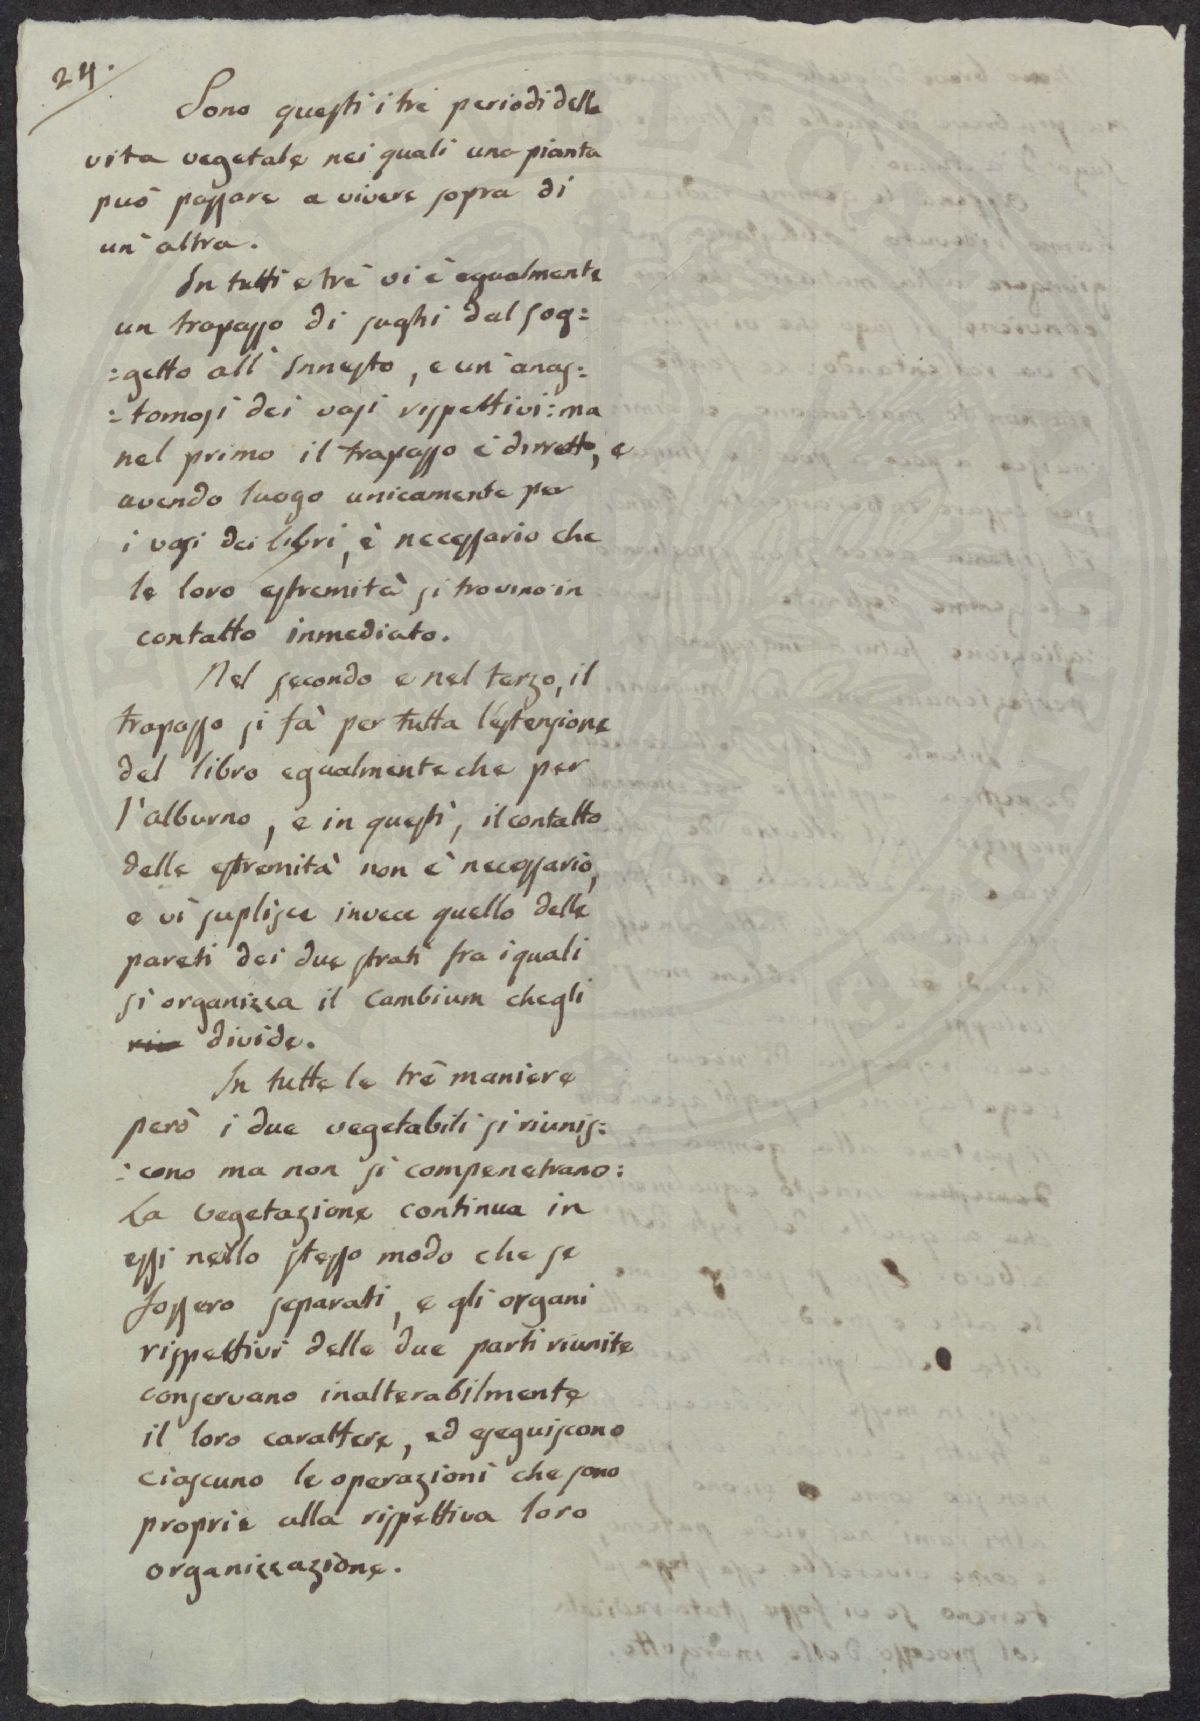 24.
Sono questi i tre periodi della
vita vegetale nei quali una pianta
può passare a vivere sopra di
un'altra.
In tutti e trè vi è egualmente
un trapasso di sughi dal sog=
=getto all'Innesto, e un'anas=
=tomosi dei vasi rispettivi: ma
nel primo il trapasso è diretto, e
avendo luogo unicamente per
i vasi dei libri, è necessario che
le loro estremità si trovino in
contatto inmediato.
Nel secondo e nel terzo, il
trapasso si fà per tutta l'estensione
del libro egualmente che per
l'alburno, e in questi, il contatto
delle estremità non è necessario,
e vi suplisce invece quello delle
pareti dei due strati fra i quali
si organizza il Cambium che gli
divide.
In tutte le trè maniere
però i due vegetabili si riunis=
=cono ma non si compenetrano:
La vegetazione continua in
essi nello stesso modo che se
fossero separati, e gli organi
rispettivi delle due parti riunite
conservano inalterabilmente
il loro carattere, ed eseguiscono
ciascuno le operazioni che sono
proprie alla rispettiva loro
organizzazione.